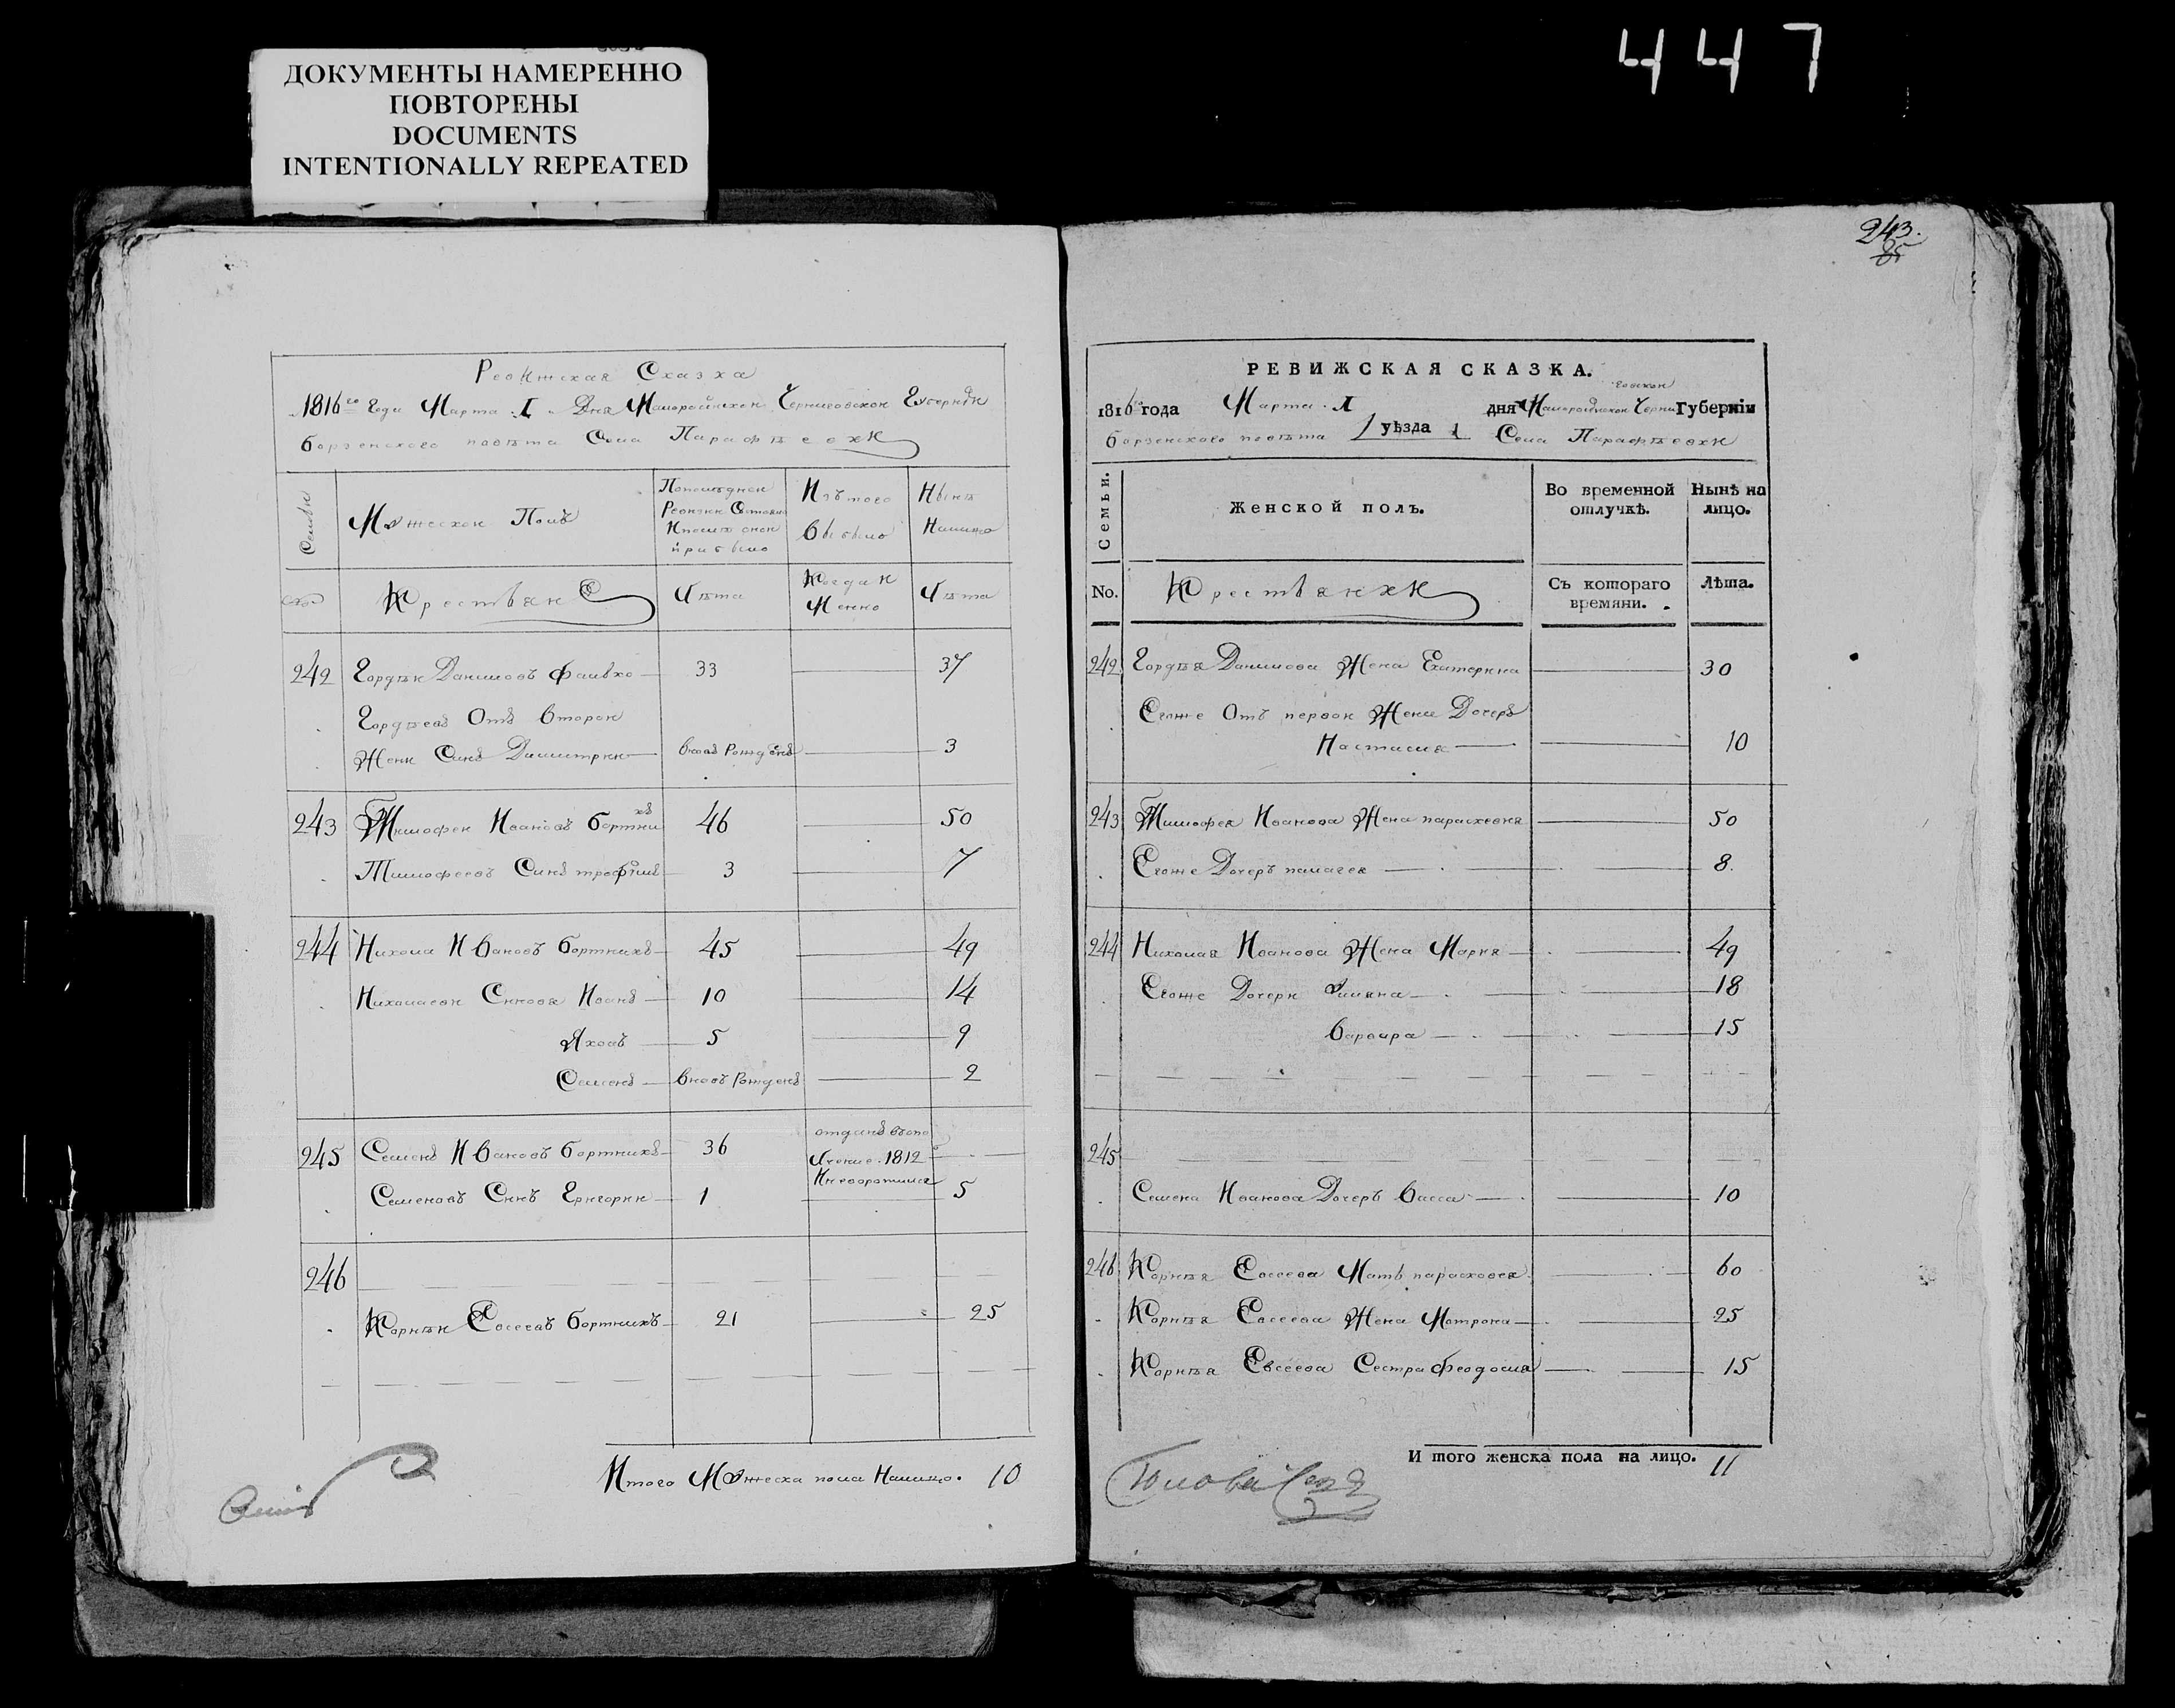 447
ДОКУМЕНТЫ НАМЕРЕННО
ПОВТОРЕНЫ
DOCUMENTS
INTENTIONALLY REPEATED
Ревижская Сказка
1816го Года Марта 1 Дня Малоросійской Черниговской Губерніи
борзенского повѣта Села Парафѣевки
Семьи
Мужескои Полъ
Попослѣднеи Ревизіи Состояло Ипослѣ онои прибыло
Изъ того выбыло
Нынѣ Налицо
№
Крестьяне
Лѣта
Когда и Менно
Лѣта
242 Гордѣи Даниловъ фалько 33 37
Гордѣевъ Отъ второи
Жени Синъ Димитрии вновъ Рожденъ 3
243 Тимофеи Ивановъ бортникъ 46 50
Тимофеевъ Синъ трофимъ 3 7
244 Никола Ивановъ бортникъ 45 49
Николаеви Синова Иванъ 10 14
Яковъ 5 9
Семенъ вновъ Рожденъ 2
245 Семенъ Ивановъ бортникъ 36 отданъ въопо
лчение 1812
Иневоротился
Семеновъ Синъ Григории 1 5
246
Корнѣи Евсеевъ бортникъ 21 25
Итого Мужеска пола Налицо. 10
243.
85
РЕВИЖСКАЯ СКАЗКА.
1816го года Марта 1 дня Малоросійской Черниговской Губерніи
борзенского повѣта уѣзда Села Парафѣевки
Семьи.
Женской полъ.
Во временной отлучкѣ.
Нынѣ на лицо.
No.
Крестьянки
Съ котораго времяни.
Лѣта.
242 Гордѣя Данилова Жена Екатерина 30
Егоже Отъ первои Жени Дочеръ
Настасия 10
243 Тимофея Иванова Жена параскевия 50
Егоже Дочеръ палагея 8.
244 Николая Иванова Жена Мария 49
Егоже Дочери Улияна 18
варвара 15
245
Семена Иванова Дочеръ васса 10
246 Корнѣя Евсеева Мать парасковея 60
Корнѣя Евсеева Жена Мотрона 25
Корнѣя Евсеева Сестра феодосия 15
И того женска пола на лицо. 11